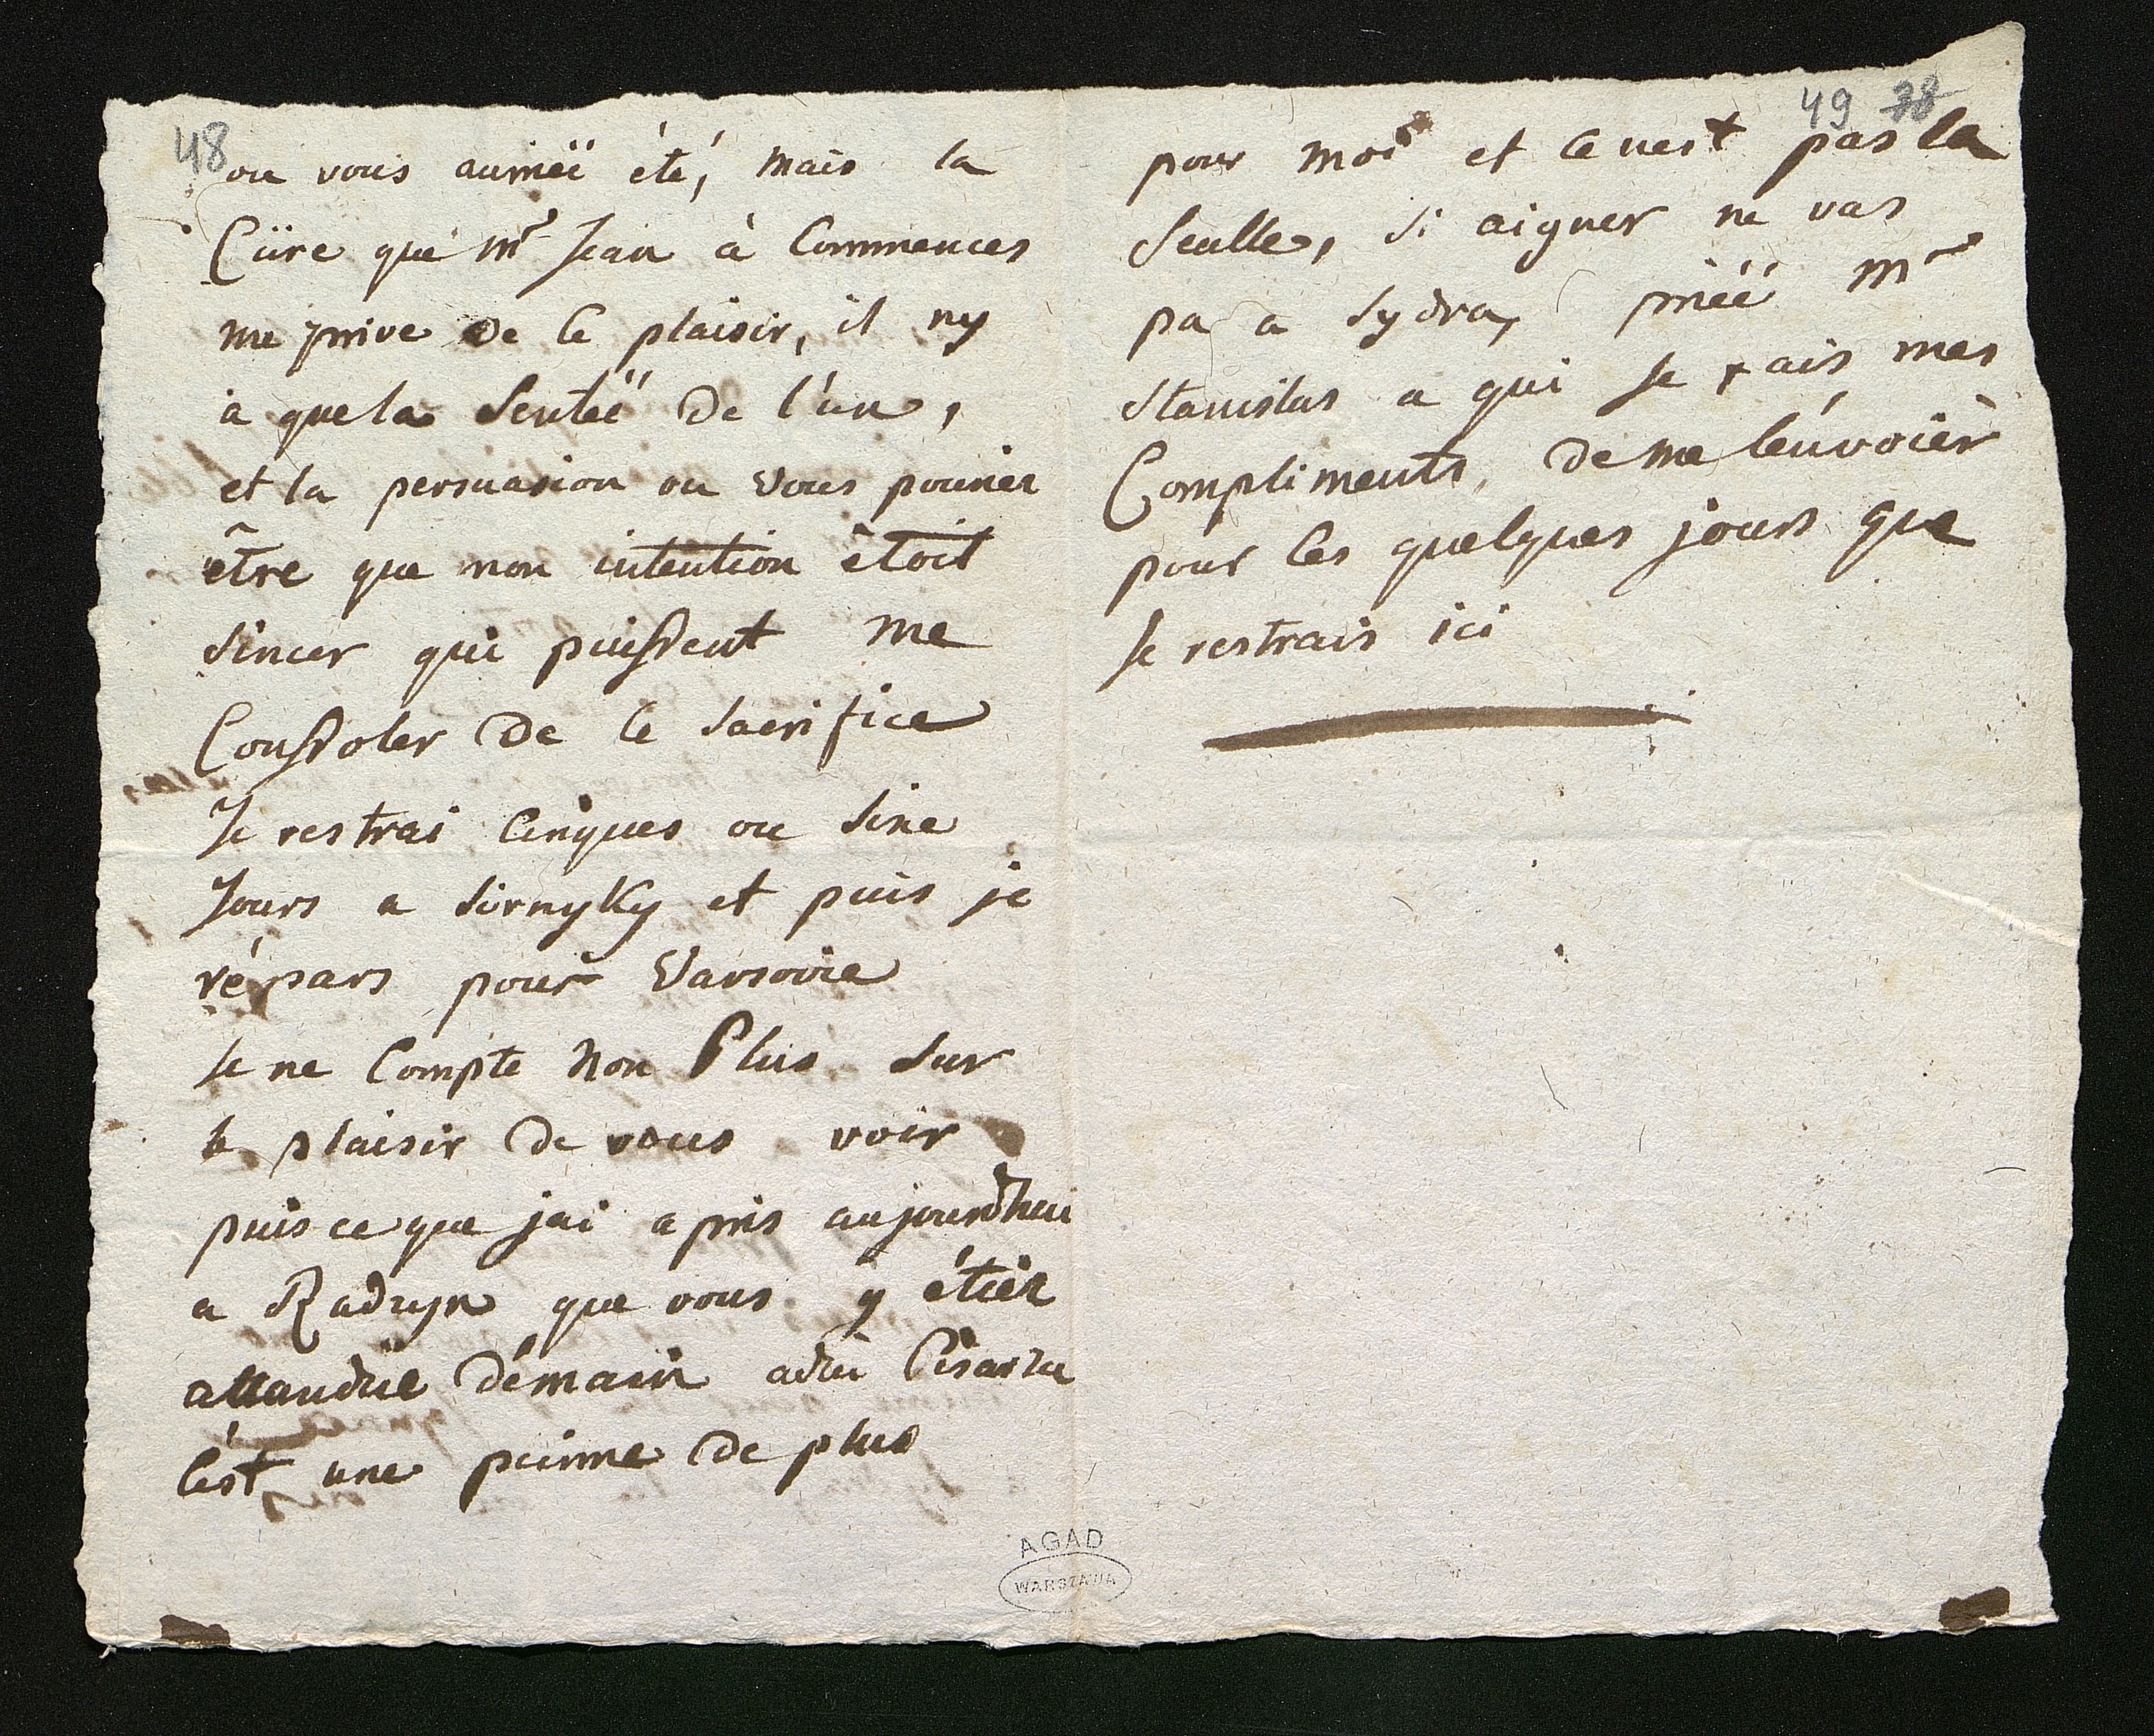 48
ou vous auriéz été, mais la
Cüre que mr Jean à Commences
me prive de Ce plaisir, il ny
a que la Sentéé de l'un,
et la persuasion ou vous pouriez
être que mon intention êtoit
Sincer qui puissent me
Consoler de Ce Sacrifice
Je restrai Cinques ou Sixe
Jours a Sirnyky et puis je
répars pour Varsovie
Je ne Compte non Plus Sur
le plaisir de vous voir
puis ce que jai apris aujourdhui
a Radzyn que vous y étiéz
attandüe démain adiu
C'est une peinne de plus
49 38
pour moi et Ce nest pas la
Seulle, Si aigner ne vas
pas a Sydra, priéé mr
Stanislas a qui Je fais mes
Compliments, de me l'énvoièr
pour les quelques jours que
Je restrais ici
AGAD
WARSZAWA